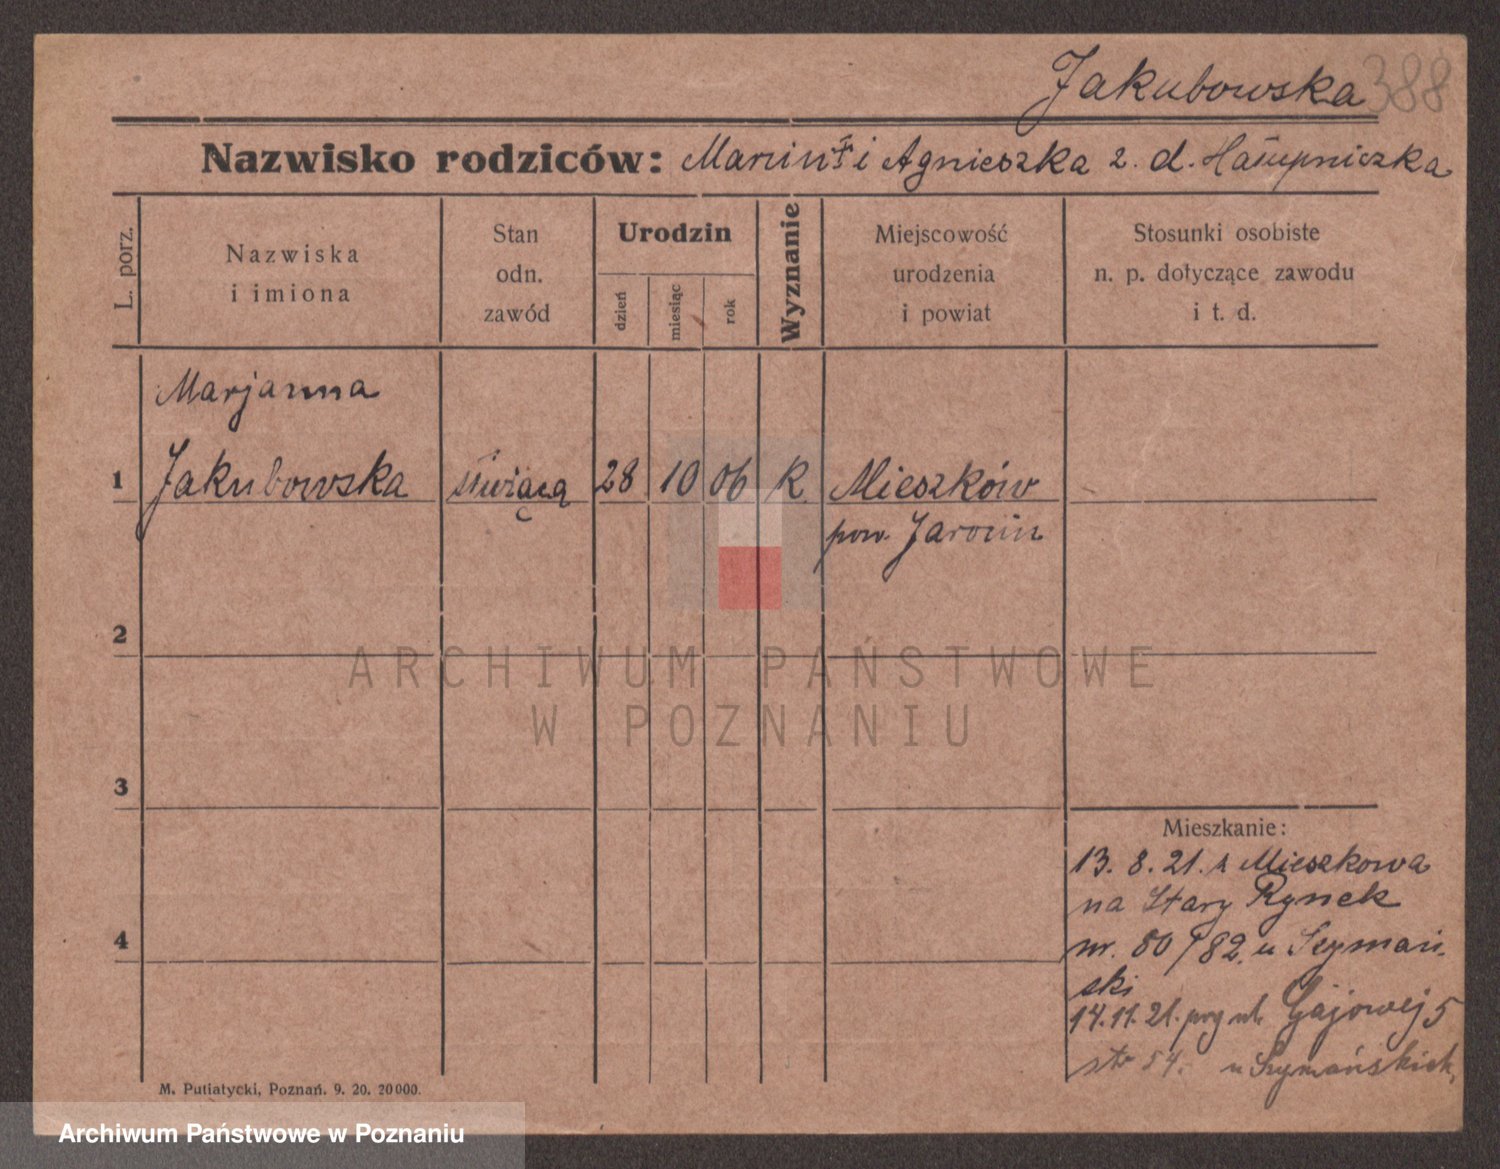 Jakubowska 388
Nazwisko rodziców: Marcin i Agnieszka z. d.
L. porz.
Nazwiska
i imiona
Stan
odn.
zawód
Urodzin
dzień
miesiąc
rok
Wyznanie
Miejscowość
urodzenia
i powiat
Stosunki osobiste
n. p. dotyczące zawodu
i t. d.
Marjanna
1 Jakubowska służąca 28 10 06 K. Mieszków
pow. Jarocin
2
3
4
Mieszkanie:
13. 8. 21. z Mieszkowa
na Stary Rynek
nr. 80/82. u Szymań-
ski
14.11.21. Gajowej 5
u Szymańskich
M. Putiatycki, Poznań. 9. 20. 20000.
ARCHIWUM PAŃSTWOWE
W POZNANIU
Archiwum Państwowe w Poznaniu